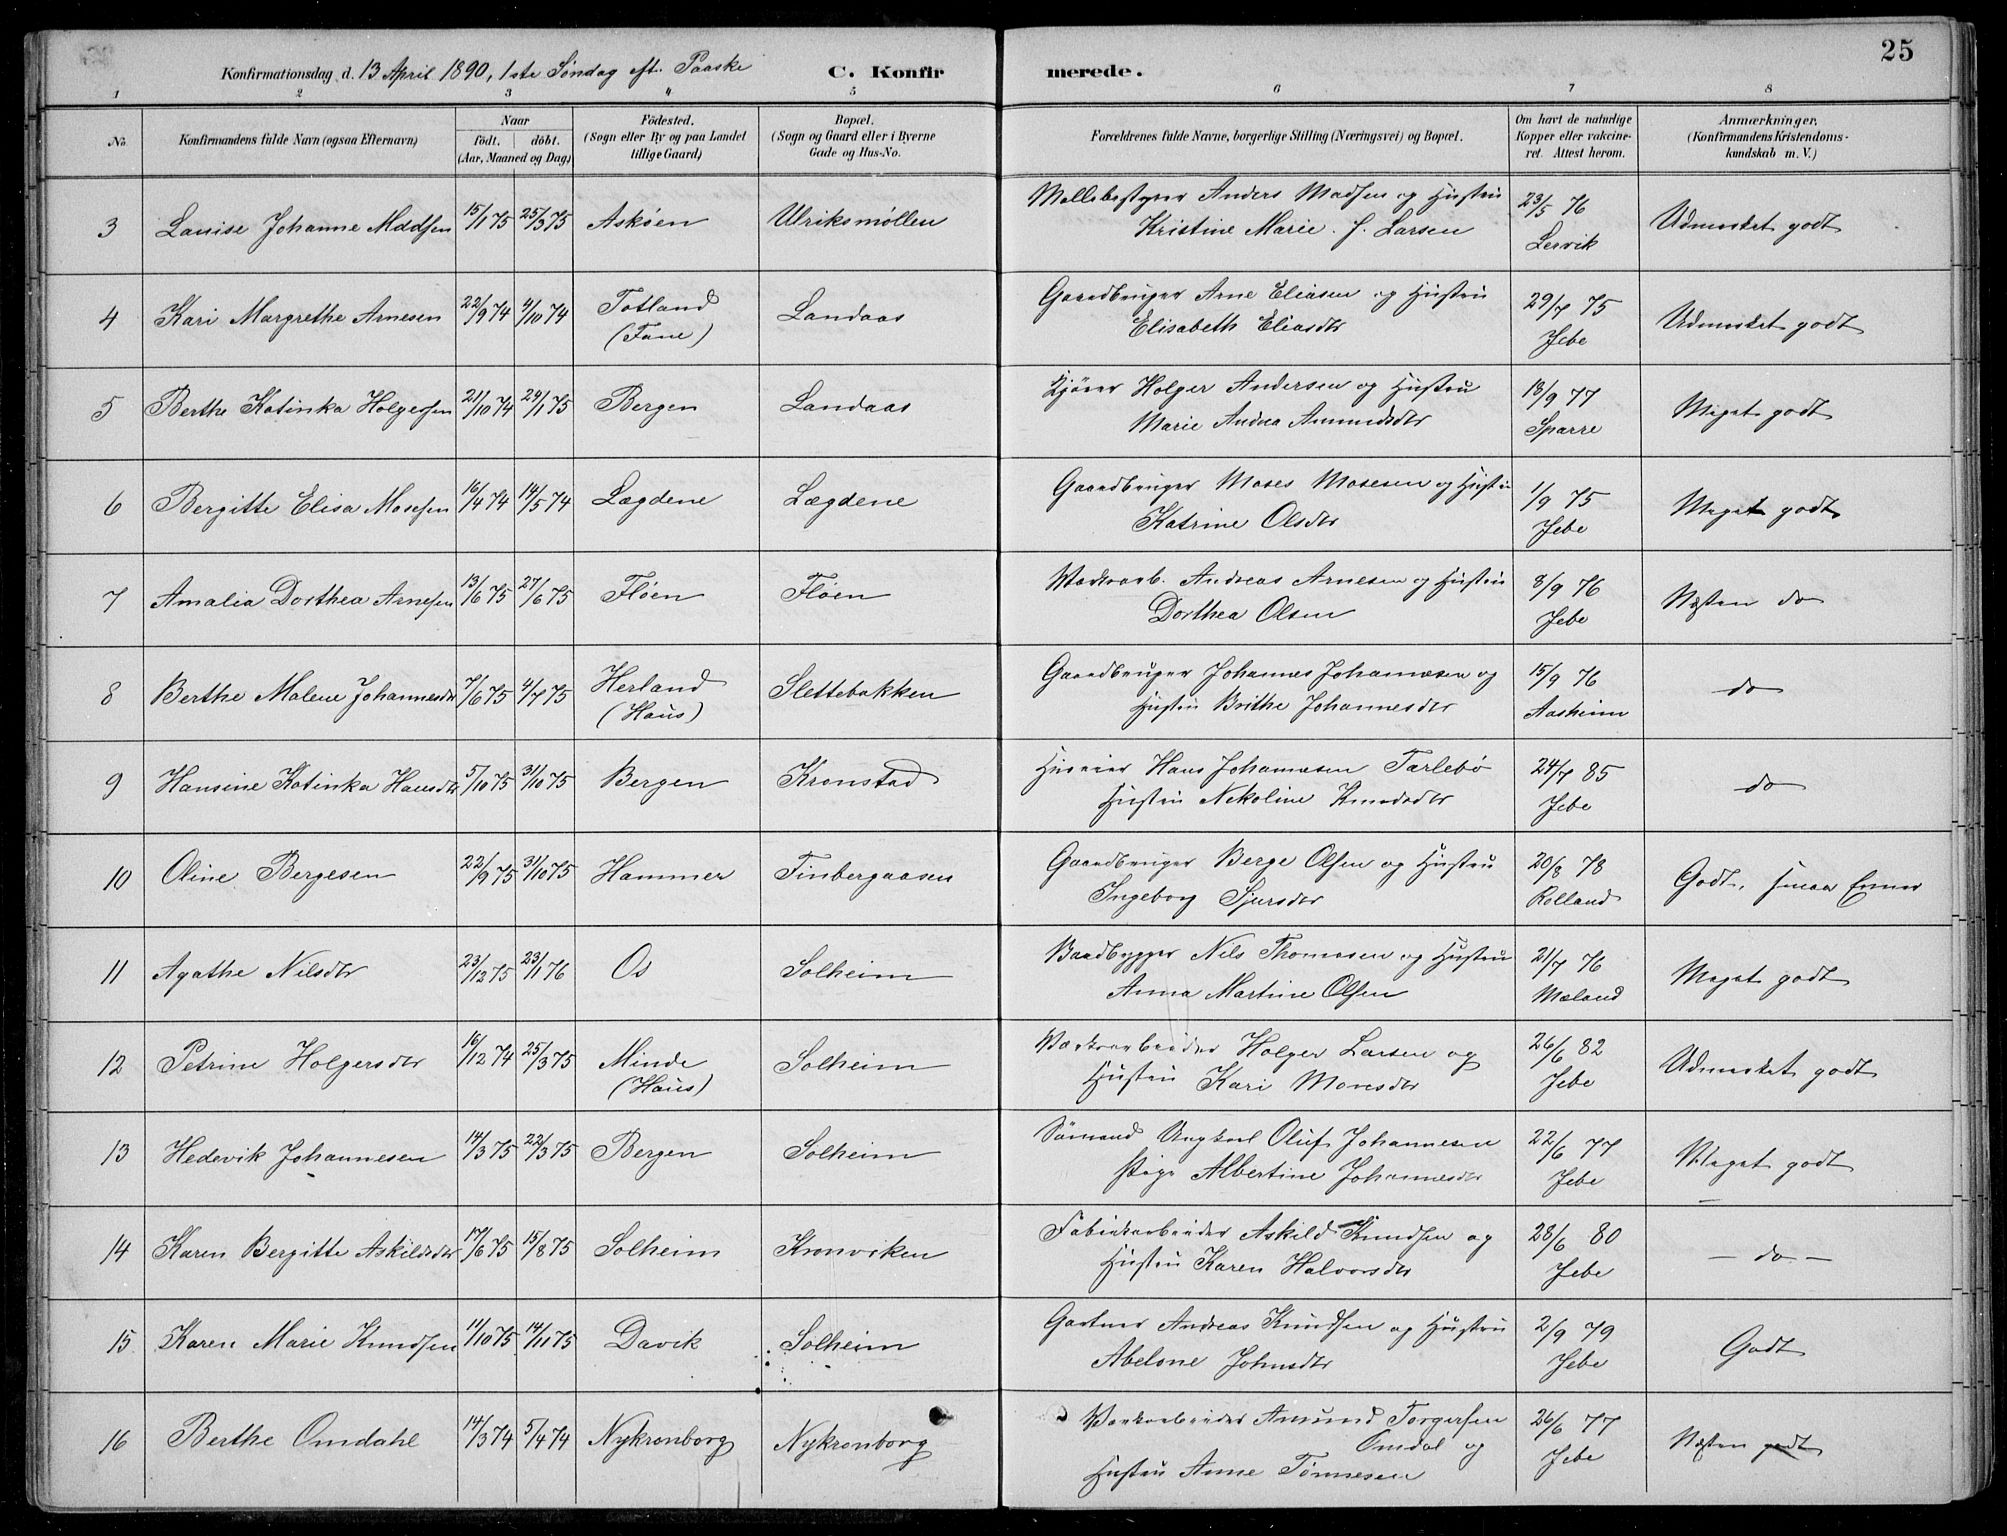 25
Konfirmationsdag d. 13 April 1890, 1ste Søndag eft. Paaske C. Konfirmerede.
1 2 3 4 5 6 7 8
No. Konfirmandens fulde Navn (ogsaa Efternavn) Naar født. døbt. (Aar, Maaned og Dag) Fødested. (Sogn eller By og paa Landet tillige Gaard) Bopæl. (Sogn og Gaard eller i Byerne Gade og Hus-No. Forældrenes fulde Navne, borgerlige Stilling (Næringsvei) og Bopæl. Om havt de naturlige Kopper eller vakcineret. Attest herom. Anmærkninger, (Konfirmandens Kristendomskundskab m. V.)
3 Louise Johanne Madsen 15/1 75 25/3 75 Askøen Ulriksmøllen Møllebestyrer Anders Madsen og Hustru 23/5 76 Udmerket godt
Kristine Marie f. Larsen Lervik
4 Kari Margrethe Arnesen 22/9 74 4/10 74 Totland Landaas Gaardbruger Arne Eliasen og Hustru 29/7 75 Udmerket godt
(Fane) Elisabeth Eliasdtr Jebe
5 Berthe Katinka Holgersen 21/10 74 24/1 75 Bergen Landaas Kjører Holger Andersen og Hustru 18/9 77 Meget godt
Marie Andrea Amundsdtr Sparre
6 Bergitte Elisa Mosesen 16/4 74 14/5 74 Lægdene Lægdene Gaardbruger Moses Mosesen og Hustru 1/9 75 Meget godt
Katrine Olsdtr Jebe
7 Amalia Dorthea Arnesen 13/6 75 27/6 75 Fløen Fløen Værksarb. Andreas Arnesen og Hustru 8/9 76 Næsten do
Dorthea Olsen Jebe
8 Berthe Malene Johannesdtr 7/6 75 4/7 75 Herland Slettebakken Gaardbruger Johannes Johannesen og 15/9 76 do
(Haus) Hustru Brithe Johannesdtr Aasheim
9 Hansine Katinka Hansdtr 5/10 75 31/10 75 Bergen Kronstad Huseier Hans Johannesen Tarlebø 24/7 85 do
Hustru Nekoline Knudsdtr Jebe
10 Oline Bergesen 22/9 75 31/10 75 Hammer Finbergaasen Gaardbruger Berge Olsen og Hustru 20/8 78 Godt, smaa Evner
Ingeborg Sjursdtr Rolland
11 Agathe Nilsdtr 23/12 75 23/1 76 Os Solheim Baadbygger Nils Thomasen og Hustru 21/7 76 Meget godt
Anna Martine Olsen Mæland
12 Petrine Holgersdtr 16/12 74 25/3 75 Minde Solheim Værksarbeider Holger Larsen og 26/6 82 Udmerket godt
(Haus) Hustru Kari Monsdtr Jebe
13 Hedevik Johannesen 14/3 75 22/3 75 Bergen Solheim Sømand Ungkarl Oluf Johannesen 22/6 77 Meget godt
Pige Albertine Johannesdtr Jebe
14 Karen Bergitte Askildsdtr 17/6 75 15/8 75 Solheim Kronviken Fabrikarbeider Askild Knudsen og 28/6 80 – do –
Hustru Karen Halvorsdtr Jebe
15 Karen Marie Knudsen 11/10 75 14/11 75 Davik Solheim Gartner Andreas Knudsen og Hustru 2/9 79 Godt
Abelone Johnsdtr Jebe
16 Berthe Omdahl 14/3 74 5/4 74 Nykronborg Nykronborg Værksarbeider Amund Torgersen 26/6 77 Næsten godt
Omdal og Jebe
Hustru Anne Tønnesen